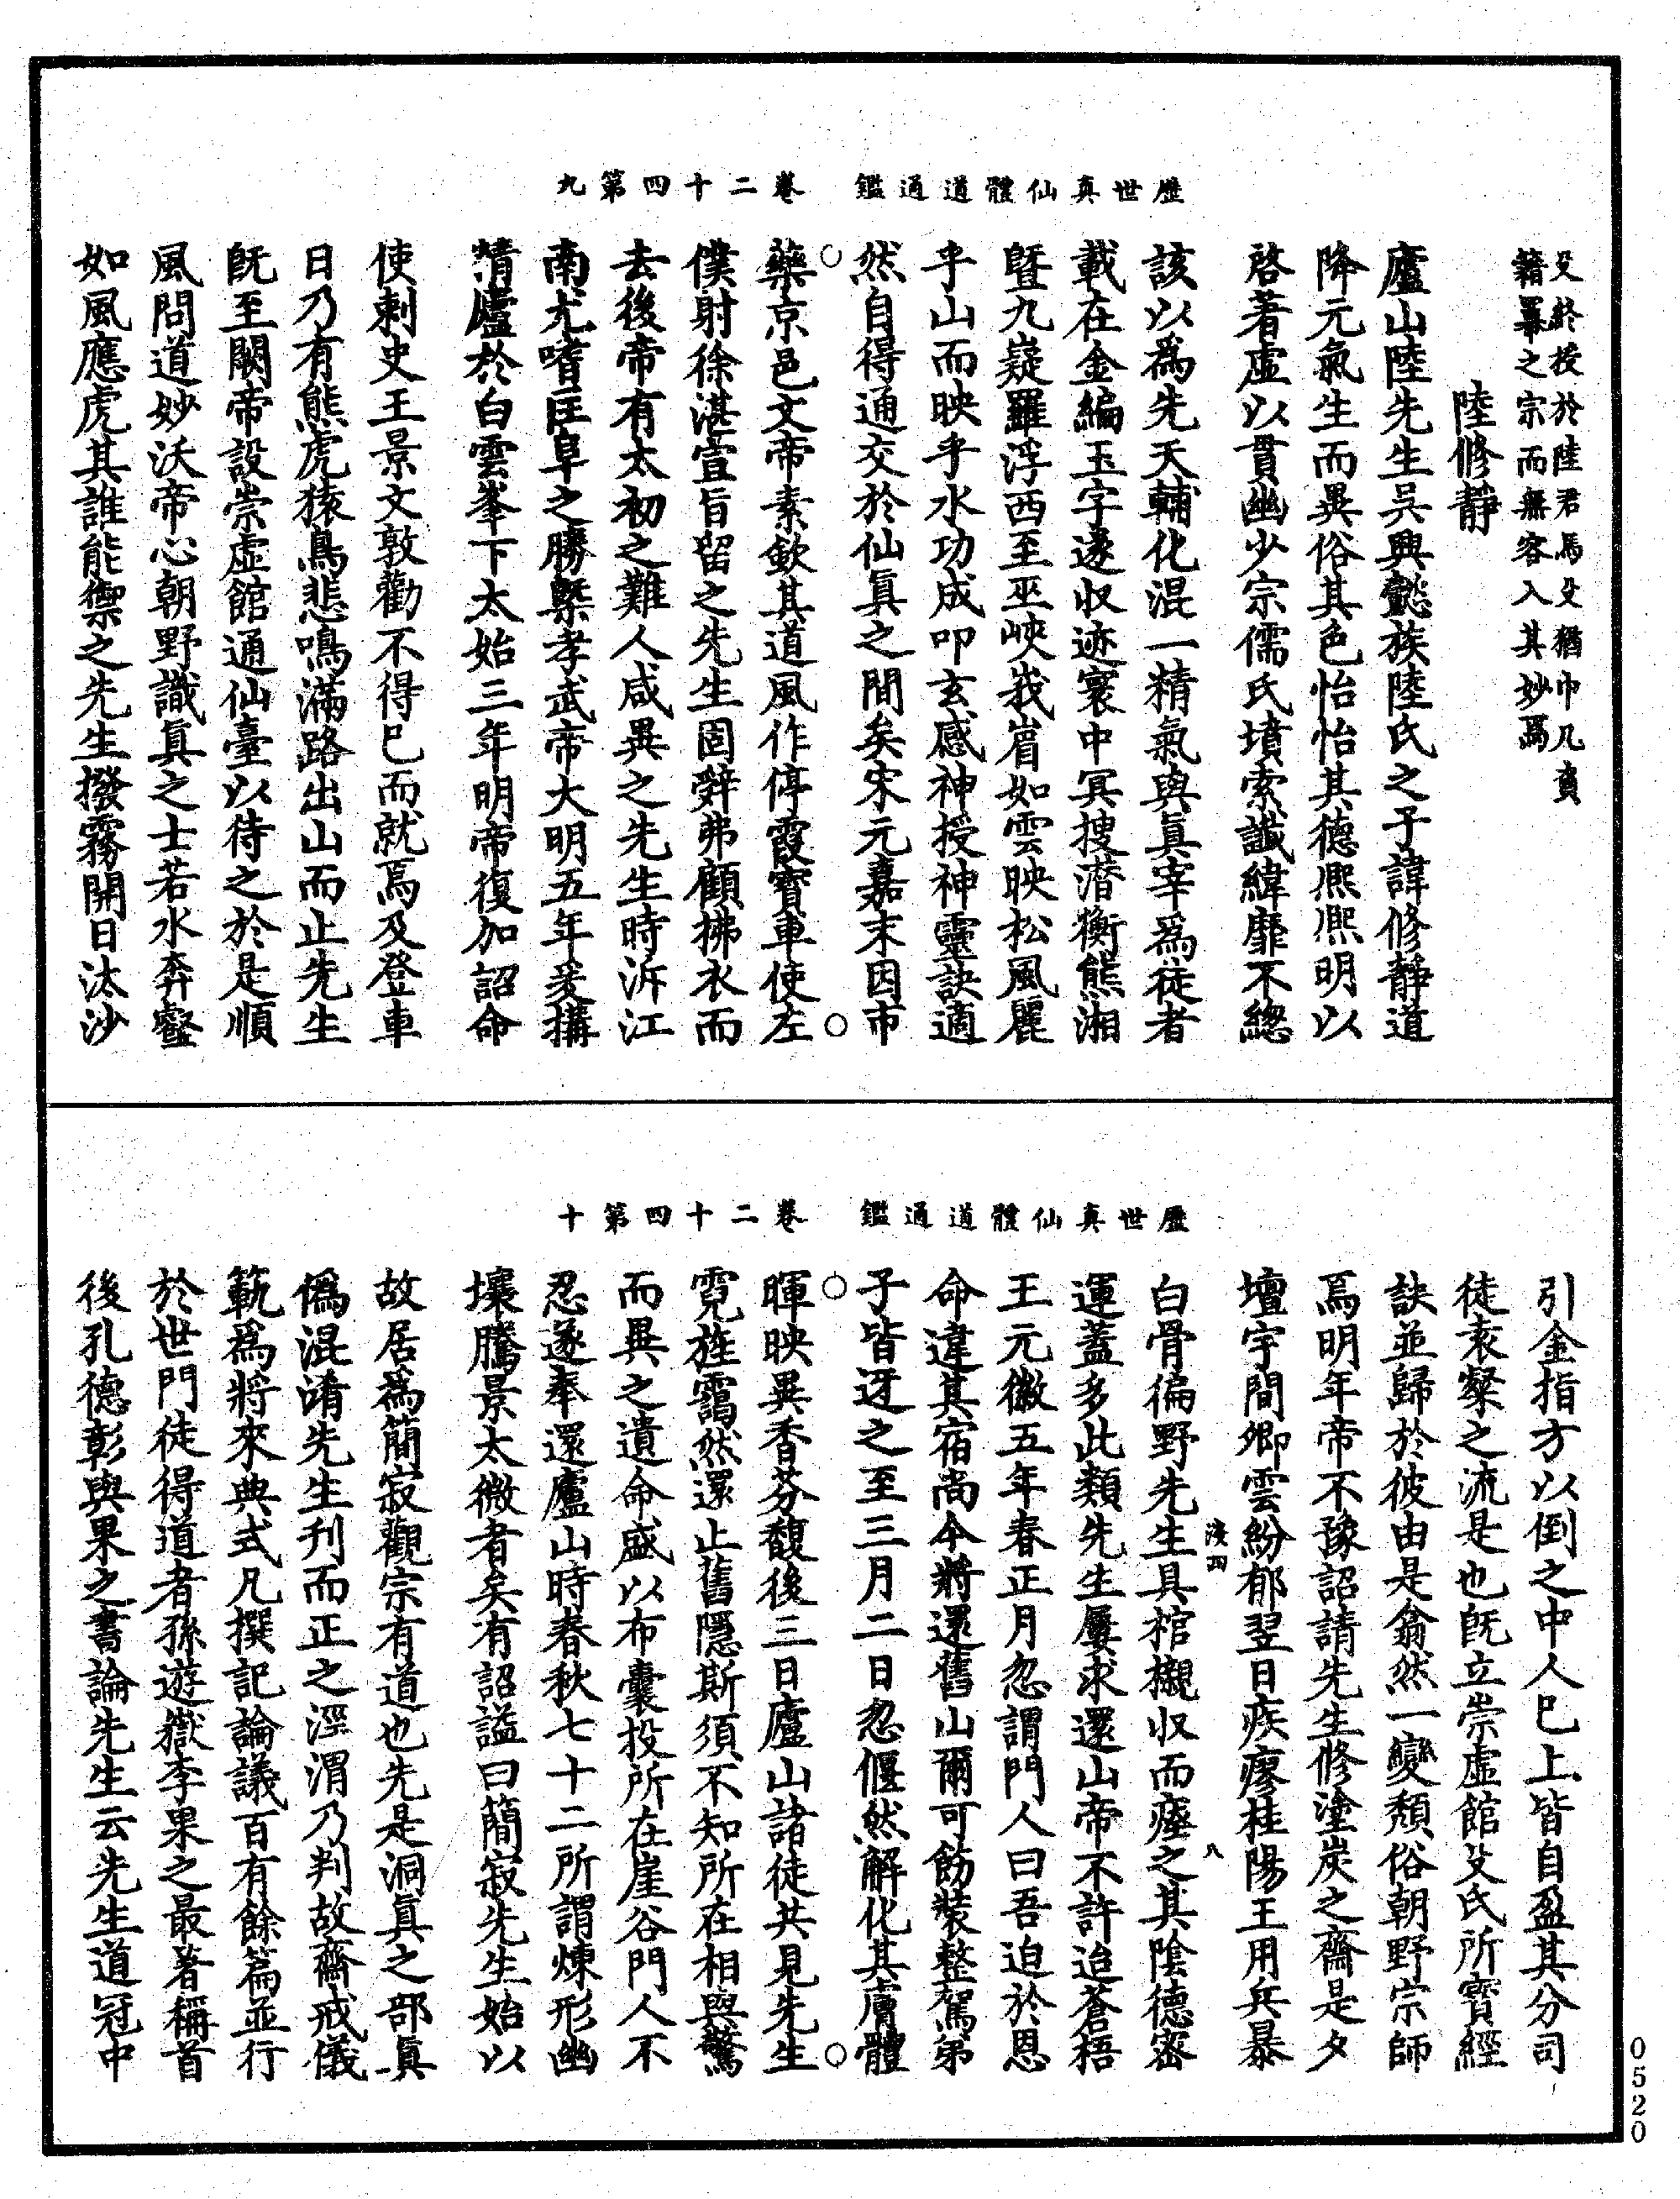 歷世真仙體道通鑑　卷二十四第九
殳終授於陸君焉殳猶巾几賁
籍羃之宗而無客入其妙焉
陸修靜
廬山陸先生吳興懿族陸氏之子諱修靜道
降元氣生而異俗其色怡怡其德熈熈明以
啓著虛以貫幽少宗儒氏墳索讖緯靡不總
該以爲先天輔化混一精氣與眞宰爲徒者
載在金編玉字遂收迹寰中冥搜潜衡熊湘
曁九嶷羅浮西至巫峽峩嵋如雲映松風麗
乎山而映乎水功成叩玄感神授神靈訣適
然自得通交於仙眞之間矣宋元嘉末因市
藥京邑文帝素欽其道風作停霞寶車使左
僕射徐湛宣旨留之先生固辭弗顧拂衣而
去後帝有太初之難人咸異之先生時泝江
南尤嗜匡阜之勝槩孝武帝大明五年爰搆
精廬於白雲峯下太始三年明帝復加詔命
使刺史王景文敦勸不得已而就焉及登車
日乃有熊虎猿鳥悲鳴滿路出山而止先生
旣至闕帝設崇虛館通仙臺以待之於是順
風問道妙沃帝心朝野識眞之士若水奔壑
如風應虎其誰能禦之先生撥霧開日汰沙
歷世真仙體道通鑑　卷二十四第十
引金指方以倒之中人已上皆自盈其分司
徒袁粲之流是也旣立崇虛館殳氏所寶經
訣並歸於彼由是翕然一變頽俗朝野宗師
焉明年帝不豫詔請先生修塗炭之齋是夕
壇宇間卿雲紛郁翌日疾瘳桂陽王用兵暴
淺四　八
白骨徧野先生具棺櫬收而瘞之其陰德密
運蓋多此類先生屢求還山帝不許迨蒼梧
王元徽五年春正月忽謂門人曰吾迫於恩
命違其宿尚今將還舊山爾可飭裝整駕弟
子皆迓之至三月二日忽偃然解化其膚體
暉映異香芬馥後三日廬山諸徒共見先生
霓旌靄然還止舊隱斯須不知所在相與驚
而異之遺命盛以布囊投所在崖谷門人不
忍遂奉還廬山時春秋七十二所謂煉形幽
壤騰景太微者矣有詔謚曰簡寂先生始以
故居爲簡寂觀宗有道也先是洞眞之部眞
僞混淆先生刊而正之涇渭乃判故齋戒儀
範爲將來典式凡撰記論議百有餘篇並行
於世門徒得道者孫遊嶽李果之最著稱首
後孔德彰與果之書論先生云先生道冠中
0520